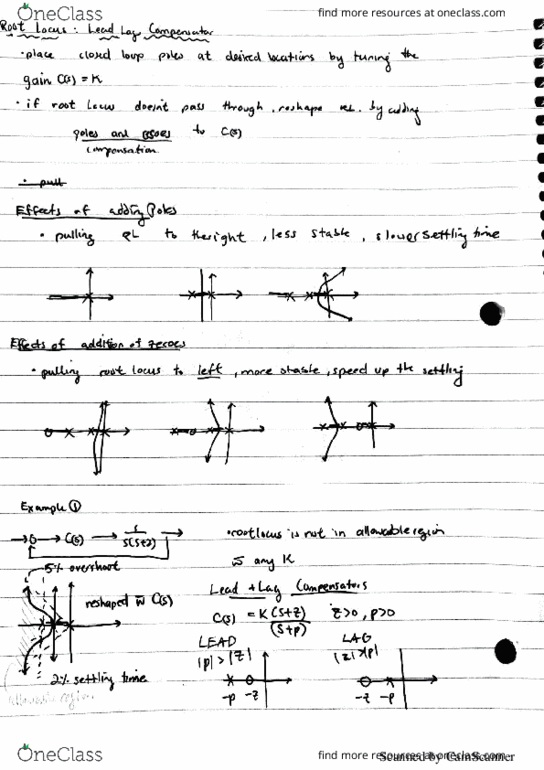 OneClass
find more resources at oneclass.com
Root Locus: Lead Lag Compensator
• place closed loop poles at desired locations by tuning the
gain C(s) = K
• if root locus doesn't pass through, reshape RL by adding
poles and zeroes to C(s)
compensation
• pull
Effects of adding Poles
• pulling RL to the right, less stable, slower settling time
Effects of addition of zeroes
• pulling root locus to left, more stable, speed up the settling
Example ①
C(s)
s(s+2)
• root locus is not in allowable region
w any K
5% overshoot
reshaped w C(s)
2% settling time
allowable region
Lead + Lag Compensators
C(s) = K(s+z) z>0, p>0
(s+p)
LEAD
|p| > |z|
-p -z
LAG
|z| > |p|
-z -p
OneClass
find more resources at oneclass.com
Scanned by CamScanner